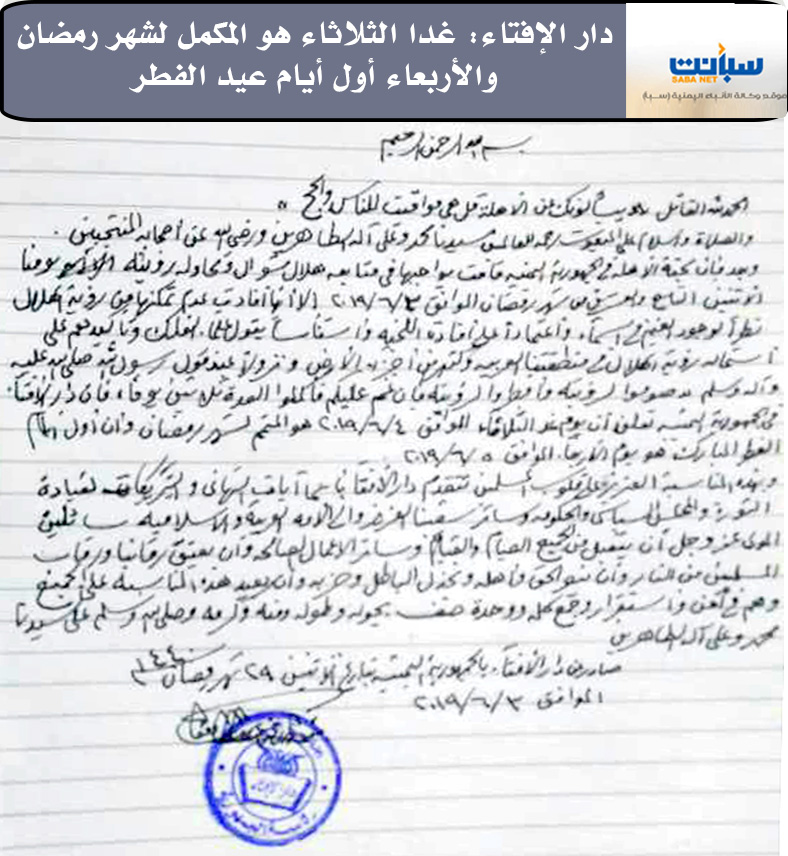 دار الإفتاء: غدا الثلاثاء هو المكمل لشهر رمضان
والأربعاء أول أيام عيد الفطر
سبأنت
SABA NET
موقع وكالة الأنباء اليمنية (سبأ)
بسم الله الرحمن الرحيم
الحمد لله القائل يسألونك عن الأهلة قل هي مواقيت للناس والحج
والصلاة والسلام على المبعوث رحمة للعالمين سيدنا محمد وعلى آله الطاهرين ورضي الله عن أصحابه المنتجبين .
وبعد فإن لجنة الأهلة في الجمهورية اليمنية قامت بواجبها في متابعة هلال شوال ومحاولة رؤيته يومنا
الاثنين التاسع والعشرين من شهر رمضان الموافق ٢٠١٩/٦/٣ إلا أنها أفادت عدم تمكنها من رؤية الهلال
نظراً لوجود الغيم في السماء واعتماداً على إفادة اللجنة واستئناساً بقول علماء الفلك وتأكيدهم على
استحالة رؤية الهلال في منطقتنا العربية وكثير من أجزاء الأرض ونزولاً عند قول رسول الله صلى الله عليه
وآله وسلم صوموا لرؤيته وأفطروا لرؤيته فإن غم عليكم فأكملوا العدة ثلاثين يوماً، فإن دار الإفتاء
في الجمهورية اليمنية تعلن أن يوم غد الثلاثاء الموافق ٢٠١٩/٦/٤ هو المتمم لشهر رمضان وأن أول أيام
الفطر المبارك هو يوم الأربعاء الموافق ٢٠١٩/٦/٥
وبهذه المناسبة العزيزة على قلوب المسلمين تتقدم دار الإفتاء بأسمى آيات التهاني والتبريكات لقيادة
الثورة والمجلس السياسي والحكومة وسائر شعبنا العزيز وإلى الأمة العربية والإسلامية سائلين
المولى عز وجل أن يتقبل من الجميع الصيام والقيام وسائر الأعمال الصالحة وأن يعتق رقابنا ورقاب
المسلمين من النار وأن ينصر الحق وأهله ويخذل الباطل وحزبه وأن يعيد هذه المناسبة على الجميع
وهم في أمن واستقرار وجمع كلمة ووحدة صف بحوله وطوله ومنه وكرمه وصلى الله وسلم على سيدنا
محمد وعلى آله الطاهرين
صادر عن دار الإفتاء بالجمهورية اليمنية بتاريخ الاثنين ٢٩ شهر رمضان ١٤٤٠
الموافق ٢٠١٩/٦/٣
دار الإفتاء